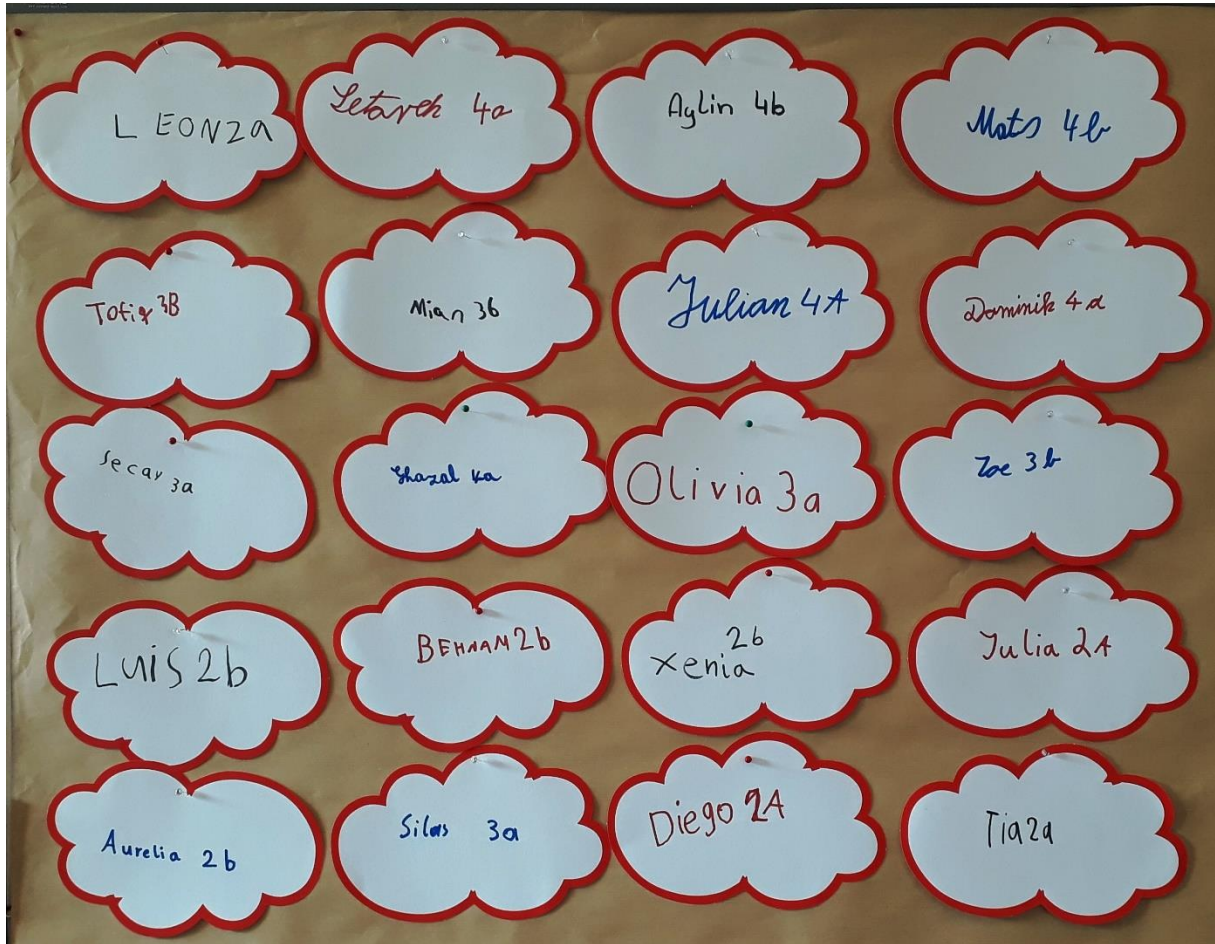 LEON 2a
Setareh 4a
Aylin 4b
Mats 4b
Tofiq 3B
Mian 3b
Julian 4A
Dominik 4a
Secay 3a
Ghazal 4a
Olivia 3a
Zoe 3b
Luis 2b
BEHNAM 2b
2b
Xenia
Julia 2A
Aurelia 2b
Silas 3a
Diego 2A
Tia 2a